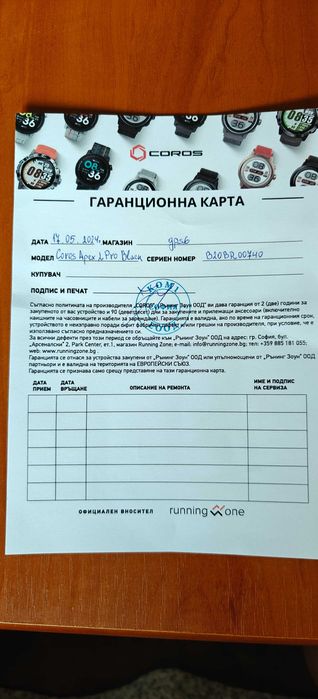 COROS
ГАРАНЦИОННА КАРТА
ДАТА 17.05.2024 МАГАЗИН
МОДЕЛ Coros Apex 2 Pro Black СЕРИЕН НОМЕР B20BR00740
КУПУВАЧ
ПОДПИС И ПЕЧАТ
Съгласно политиката на производителя "COROS", "Рънинг Зоун ООД" ви дава гаранция от 2 (две) години за
закупеното от вас устройство и 90 (деветдесет) дни за закупените и прилежащи аксесоари (включително
каишките на часовниците и кабели за зареждане). Гаранцията е валидна, ако по време на гаранционния срок,
устройството е неизправно поради фабричен дефект и/или грешки на производителя, при условие, че е
използвано съгласно предназначението си.
За всички дефекти през този период се обърнете към "Рънинг Зоун" ООД на адрес: гр. София, бул.
„Арсеналски" 2, Park Center, ет.1, магазин Running Zone; e-mail: info@runningzone.bg; тел: +359 885 181 055;
web: www.runningzone.bg .
Гаранцията се отнася за устройства закупени от „Рънинг Зоун" ООД или упълномощени от „Рънинг Зоун" ООД
партньори и е валидна на територията на ЕВРОПЕЙСКИ СЪЮЗ.
Гаранцията се признава само срещу представяне на тази гаранционна карта.
ДАТА ПРИЕМ
ДАТА ВРЪЩАНЕ
ОПИСАНИЕ НА РЕМОНТА
ИМЕ И ПОДПИС НА СЕРВИЗА
ОФИЦИАЛЕН ВНОСИТЕЛ running zone